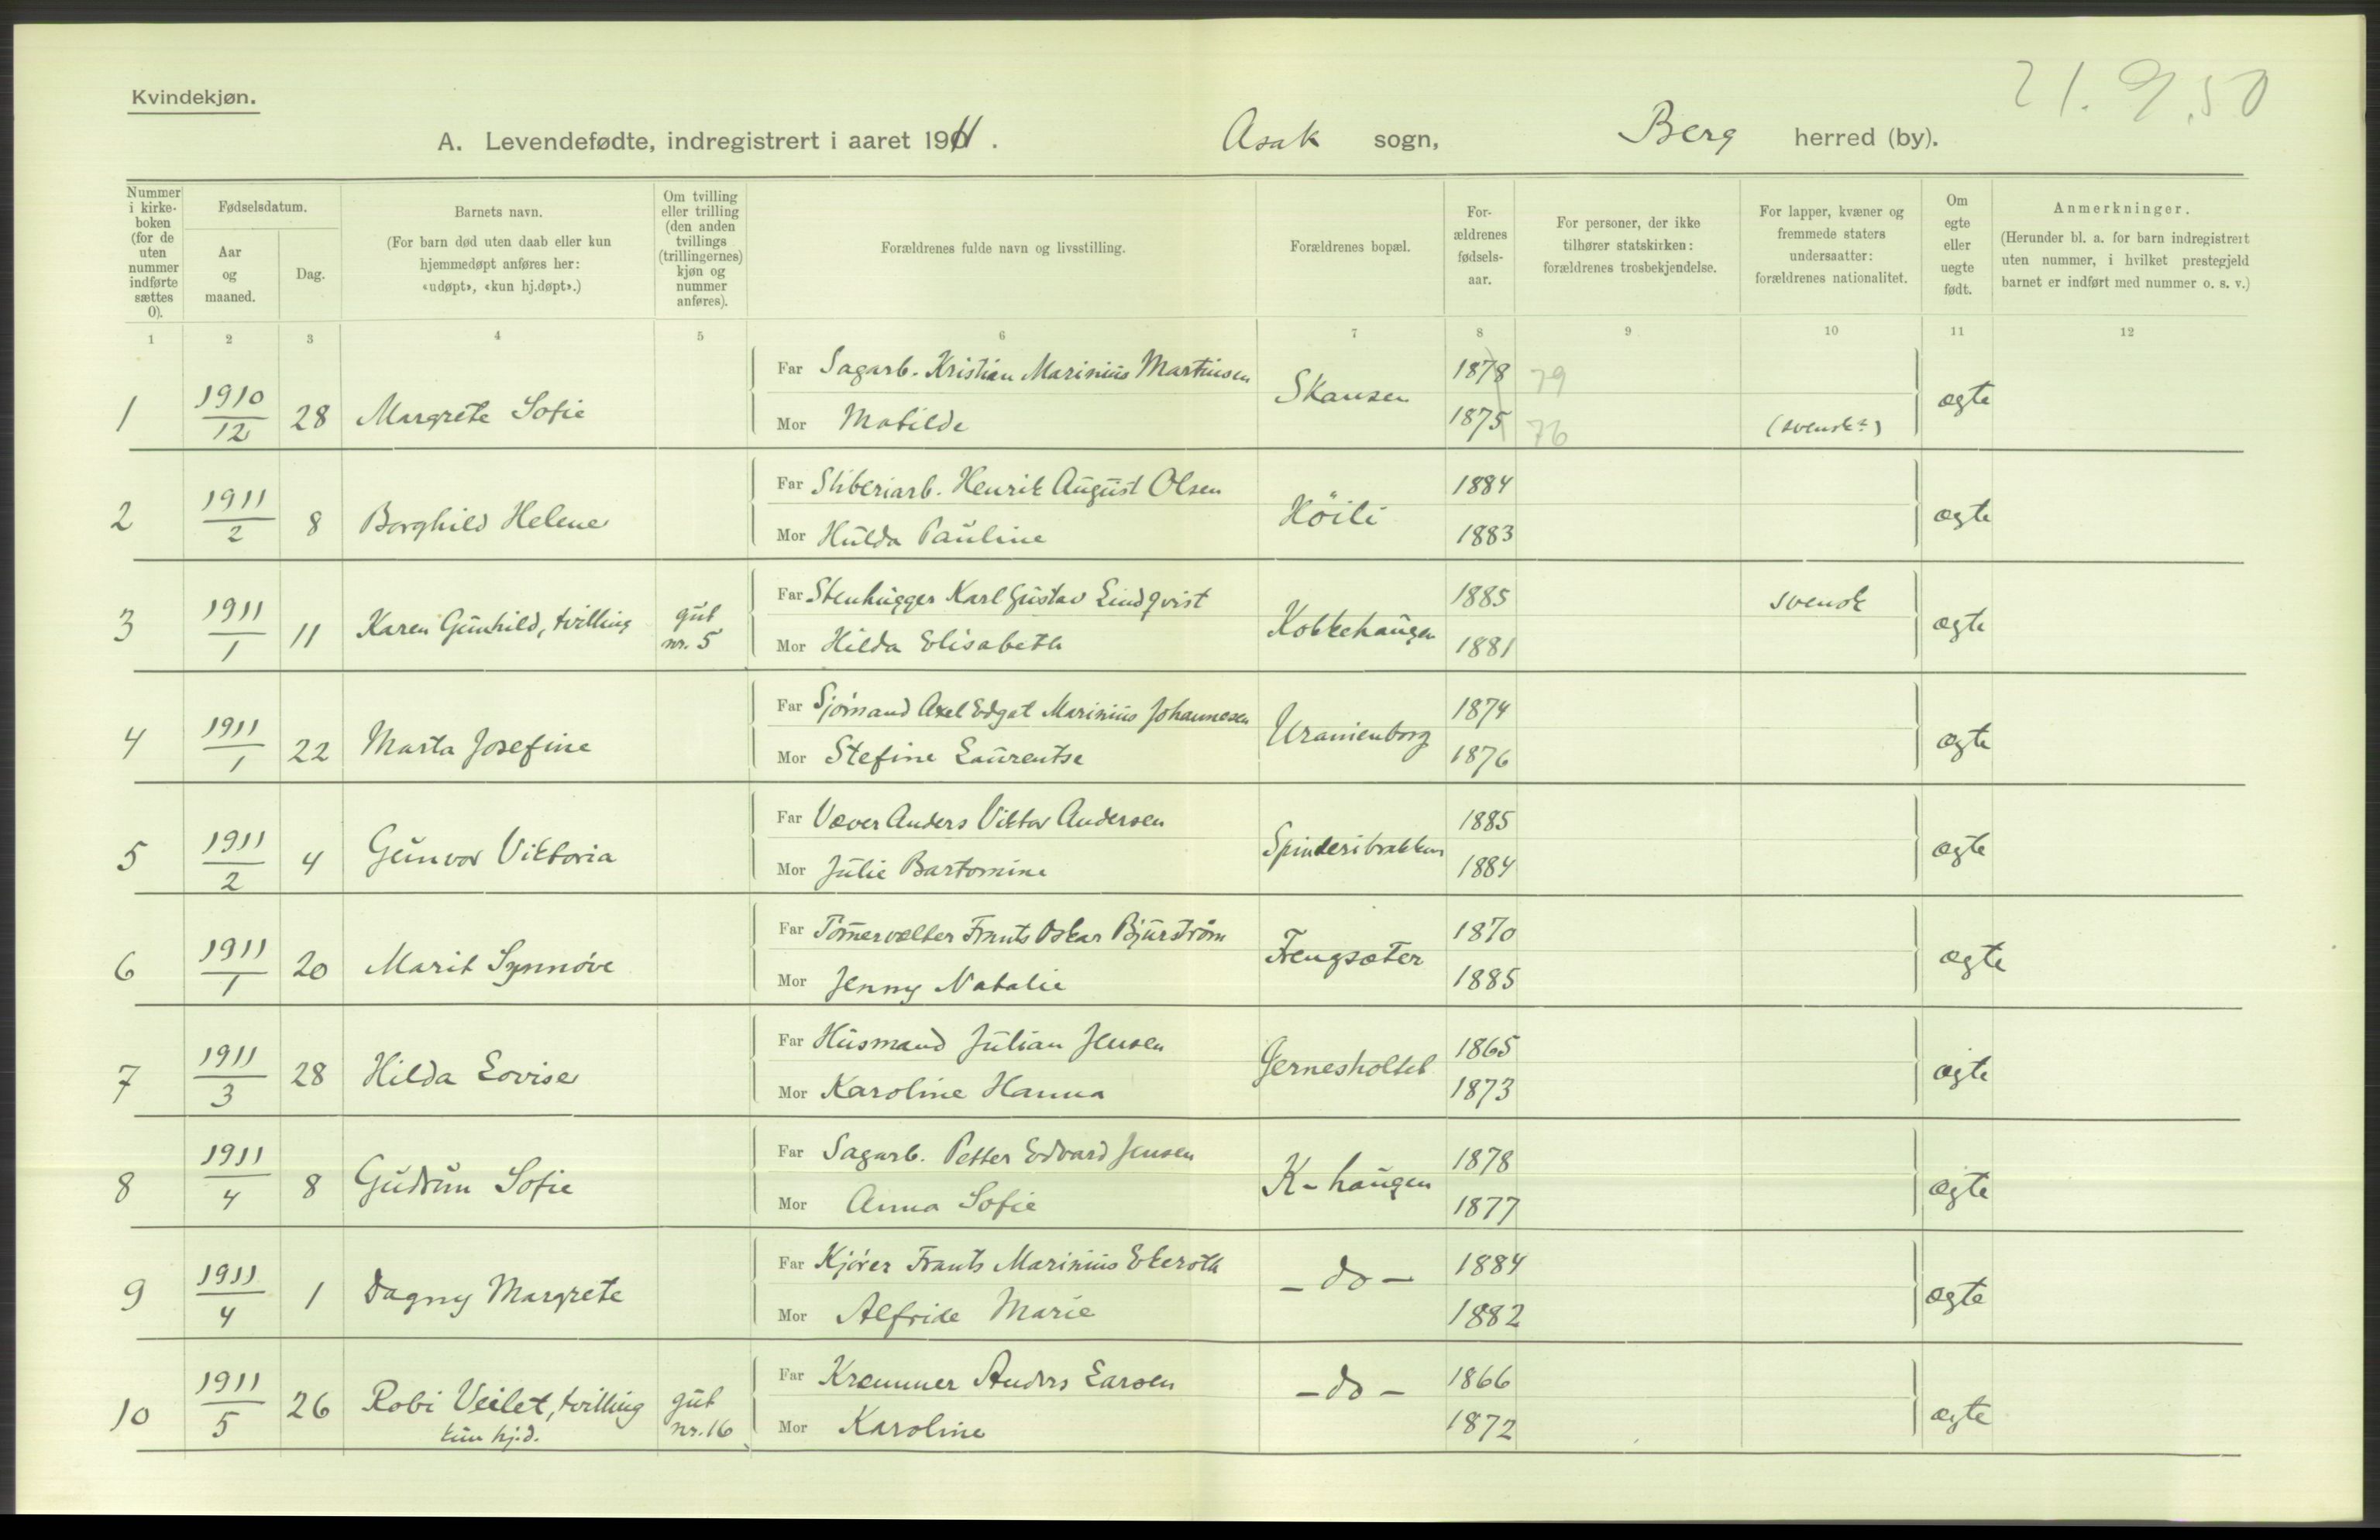 21.9.50
Kvindekjøn.
A. Levendefødte, indregistrert i aaret 1911. Asak sogn, Berg herred (by).
Nummer i kirkeboken (for de uten nummer indførte sættes 0).
Fødselsdatum.
Aar og maaned.
Dag.
Barnets navn.
(For barn død uten daab eller kun hjemmedøpt anføres her: «udøpt», «kun hj.døpt».)
Om tvilling eller trilling (den anden tvillings (trillingernes) kjøn og nummer anføres).
Forældrenes fulde navn og livsstilling.
Forældrenes bopæl.
Forældrenes fødselsaar.
For personer, der ikke tilhører statskirken: forældrenes trosbekjendelse.
For lapper, kvæner og fremmede staters undersaatter: forældrenes nationalitet.
Om egte eller uegte født.
Anmerkninger.
(Herunder bl. a. for barn indregistrert uten nummer, i hvilket prestegjeld barnet er indført med nummer o. s. v.)
1 2 3 4 5 6 7 8 9 10 11 12
1 1910/12 28 Margrete Sofie Far Sagarb. Kristian Marinius Martinsen Skansen 1878 79 ægte
Mor Matilde 1875 76 (svensk?)
2 1911/2 8 Borghild Helene Far Sliberiarb. Henrik August Olsen Höili 1884 ægte
Mor Hulda Pauline 1883
3 1911/1 11 Karen Gunhild, tvilling gut nr. 5 Far Stenhugger Karl Gustav Lindqvist Kokkehaugen 1885 svensk ægte
Mor Hilda Elisabeth 1881
4 1911/1 22 Marta Josefine Far Sjömand Axel Edgat Marinius Johannesen Uranienborg 1874 ægte
Mor Stefine Laurentse 1876
5 1911/2 4 Gunvor Viktoria Far Væver Anders Viktor Andersen Spinderibrakken 1885 ægte
Mor Julie Bartomine 1884
6 1911/1 20 Marit Synnøve Far Tømmervelter Frants Oskar Bjurstrøm Fengsæter 1870 ægte
Mor Jenny Natalie 1885
7 1911/3 28 Hilda Lovise Far Husmand Julian Jensen Gjernesholtet 1865 ægte
Mor Karoline Hanna 1873
8 1911/4 8 Gudrun Sofie Far Sagarb. Petter Edvard Jensen K-haugen 1878 ægte
Mor Anna Sofie 1877
9 1911/4 1 Dagny Margrete Far Kjörer Frants Marinius Ekeroth - do - 1884 ægte
Mor Alfride Marie 1882
10 1911/5 26 Robi Veilet, tvilling gut nr. 16 Far Kræmmer Anders Larsen - do - 1866 ægte
kun hj.d. Mor Karoline 1872